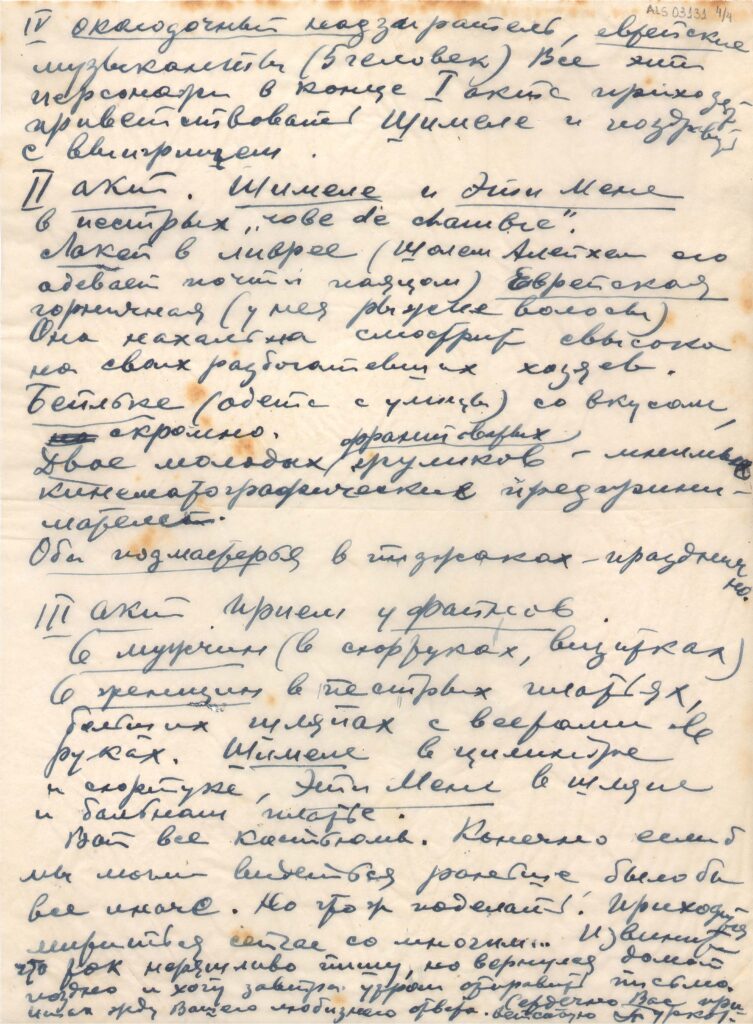 ALS 03131 4/4
IV околодочный надзиратель, еврейские
музыканты (5 человек) Все эти
персонажи в конце I акта приходят
приветствовать Шимеле и поздравить
с выигрышем.
II акт. Шимеле и Эти Мене
в пестрых "robe de chambre".
Лакей в ливрее (Шолем Алейхем его
одевает почти паяцом) Еврейская
горничная (у нея рыжие волосы)
Она нахально смотрит свысока
на своих разбогатевших хозяев.
Бейльке (одета с улицы) со вкусом,
скромно.
франтоватых
Двое молодых жуликов – мнимых
кинематографических предприни-
мателей.
Оба подмастерья в пиджаках – празднично.
III акт Прием у Файнсов.
6 мужчин (в сюртуках, визитках)
6 женщин в пестрых платьях,
больших шляпах с веерами в
руках. Шимеле в цилиндре
и сюртуке, Эти Мене в шляпе
и бальном платье.
Вот все костюмы. Конечно если б
мы могли видеться раньше было бы
все иначе. Но что ж поделать! Приходится
мириться сейчас со многим... Извините
что так неряшливо пишу, но вернулся домой
поздно и хочу завтра утром отправить письмо.
Итак жду Вашего любезного ответа. Сердечно Вас при-
ветствую